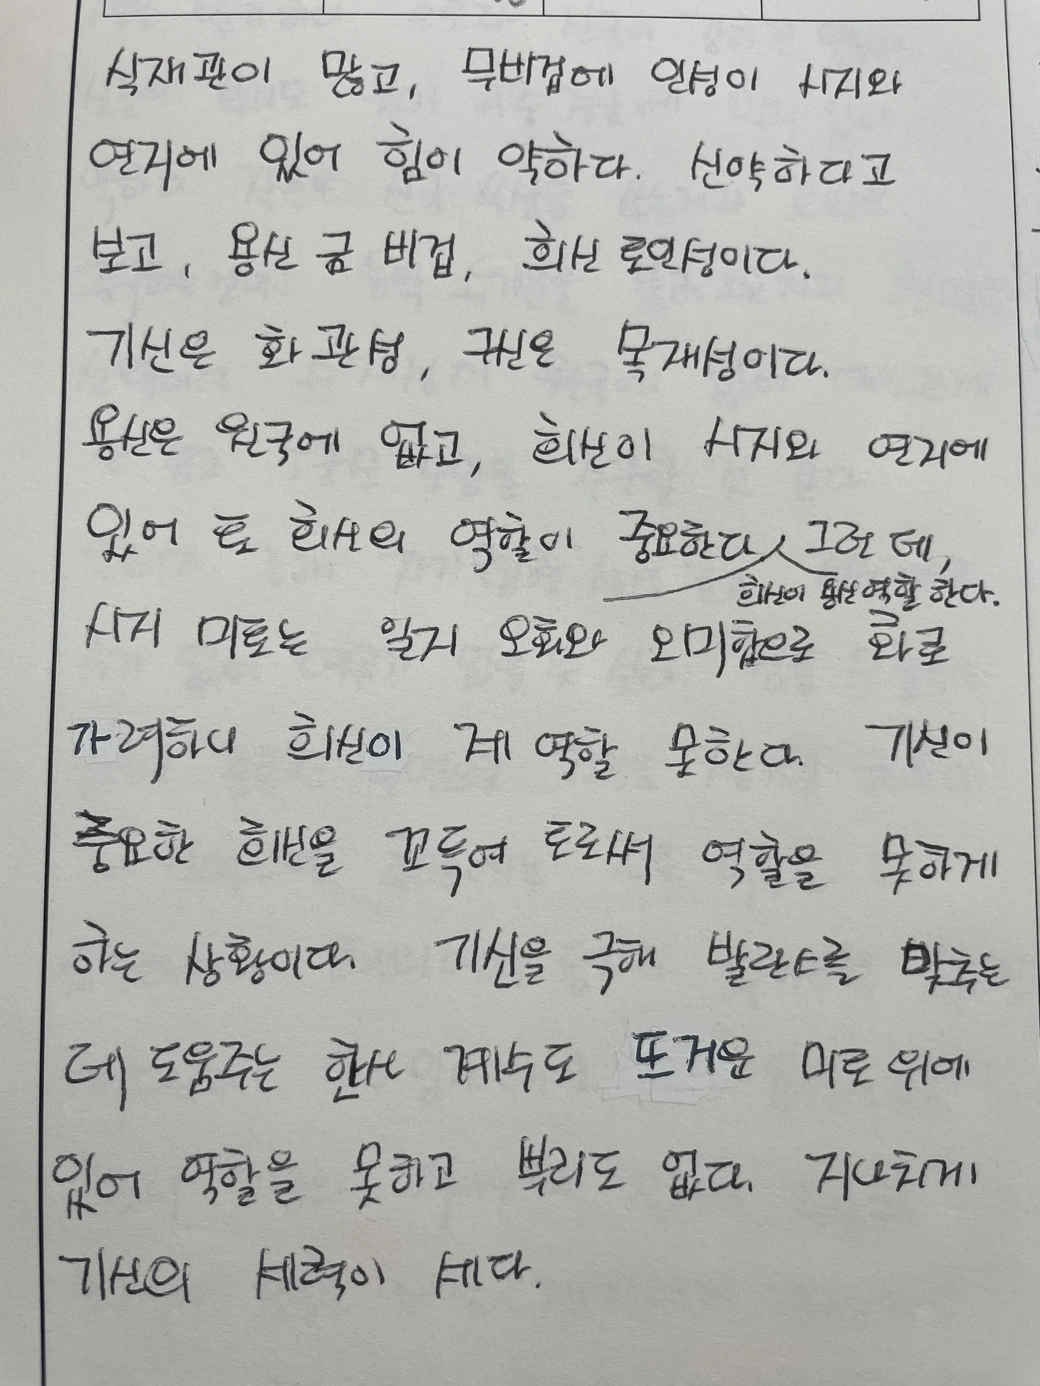 식재관이 많고, 무비겁에 인성이 시지와
연지에 있어 힘이 약하다. 신약하다고
보고, 용신 금 비겁, 희신 토인성이다.
기신은 화 관성, 구신은 목재성이다.
용신은 원국에 없고, 희신이 시지와 연지에
있어 토 희신의 역할이 중요한다 그런 데,
희신이 용신역할 한다.
시지 미토는 일지 오화와 오미합으로 화로
가려하니 희신이 제 역할 못한다. 기신이
중요한 희신을 꼬득여 토로써 역할을 못하게
하는 상황이다. 기신을 극해 발란스를 맞추는
데 도움주는 한신 계수도 뜨거운 미토 위에
있어 역할을 못하고 뿌리도 없다. 지나치게
기신의 세력이 세다.